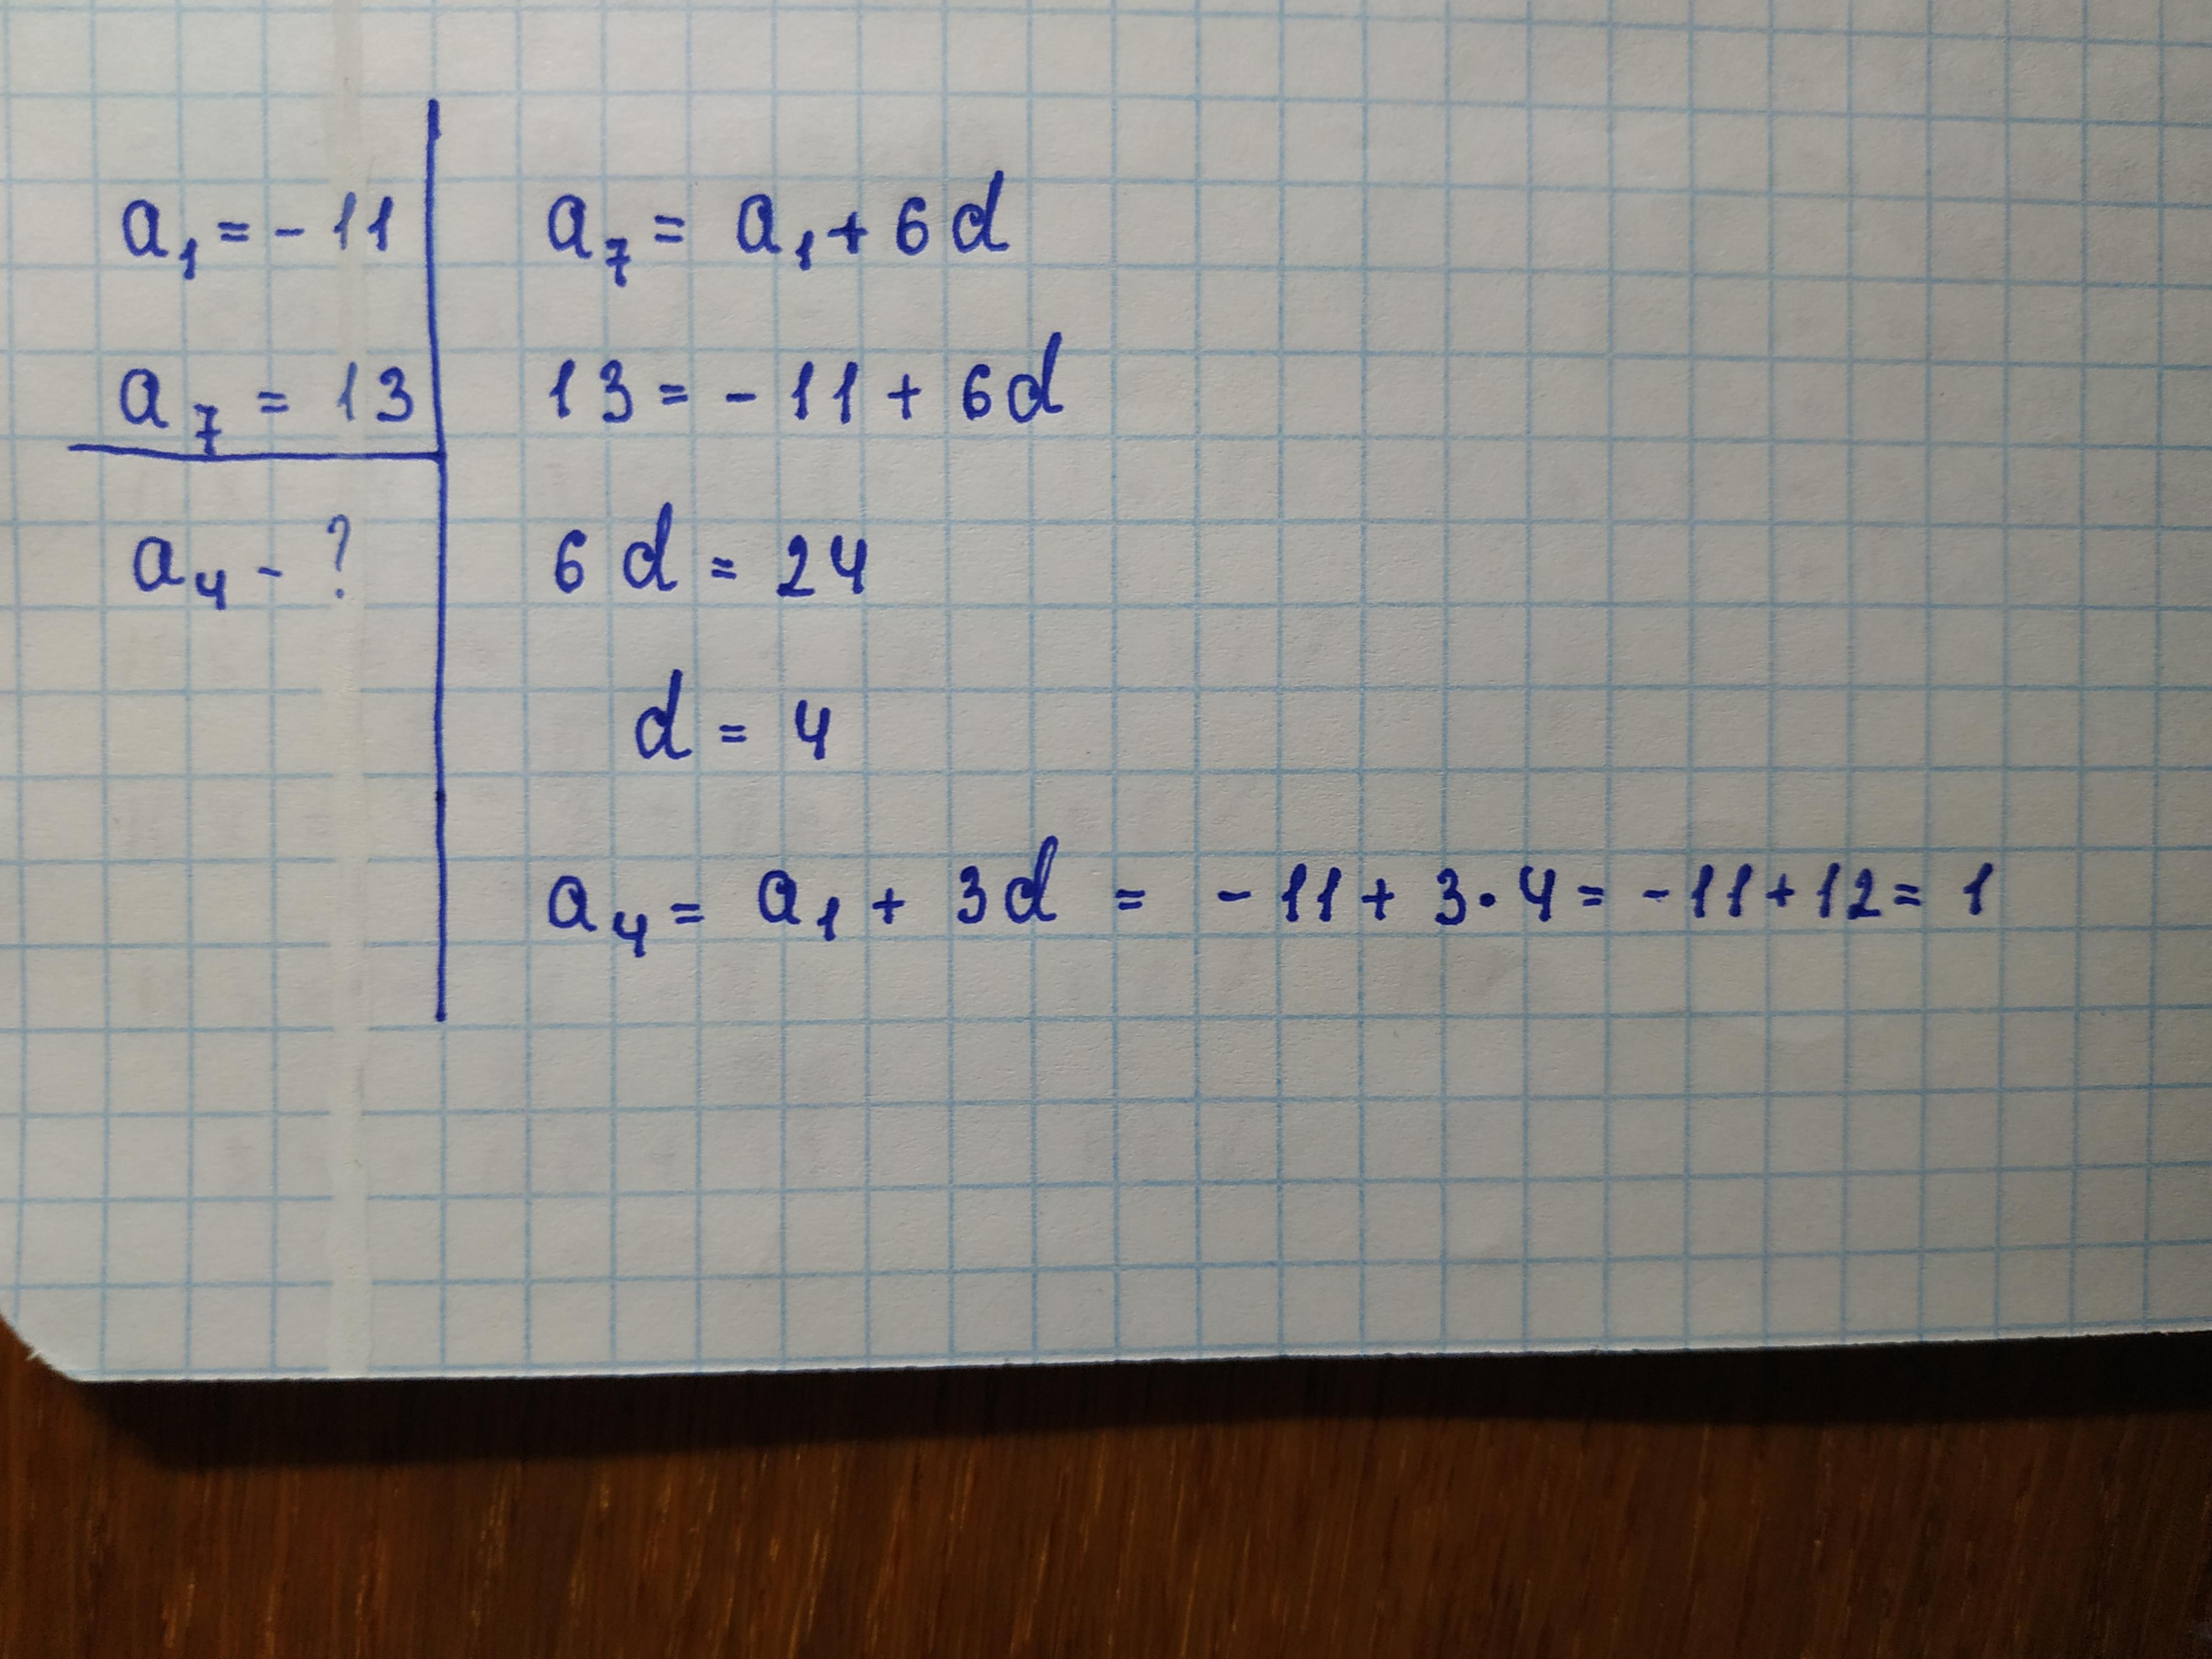 a₁ = - 11
a₇ = 13
a₄ - ?
a₇ = a₁ + 6d
13 = - 11 + 6d
6d = 24
d = 4
a₄ = a₁ + 3d = - 11 + 3 · 4 = - 11 + 12 = 1